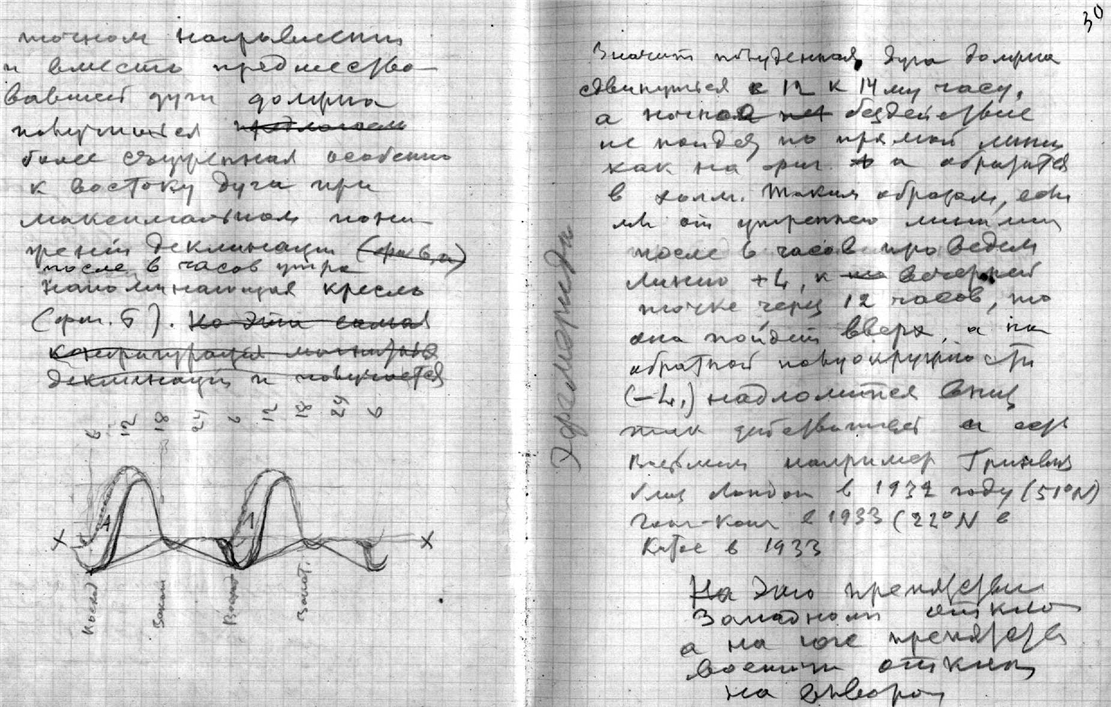 точном направлении
и вместо предшество-
вавшей дуги должна
получиться
более сощуренная особенно
к востоку дуга при
максимальном пони-
жении деклинации
после 6 часов утра
напоминающая кресло
(фиг. Б). Но эта самая
конфигурация магнитной
деклинации и получается
6 12 18 24 6 12 18 24 6
X X
Восход Закат Восход Закат
30
Значит полуденная дуга должна
сдвинуться с 12 к 14му часу,
а ночное бездействие
не пойдет по прямой линии
как на фиг. а обратится
в холм. Таким образом, если
мы от утреннего
после 6 часов проведем
линию +4, к вечерней
точке через 12 часов, то
она пойдет вверх, а на
обратной полуокружности
(-4,) надломится вниз
так действительно и есть
Возьмем например Гринвич
близ Лондон в 1932 году (51°N)
Гон-Кон в 1933 (22°N в
Китае в 1933
На это препятствии
Западном откло
а на юге препятств
на
Эфемериды